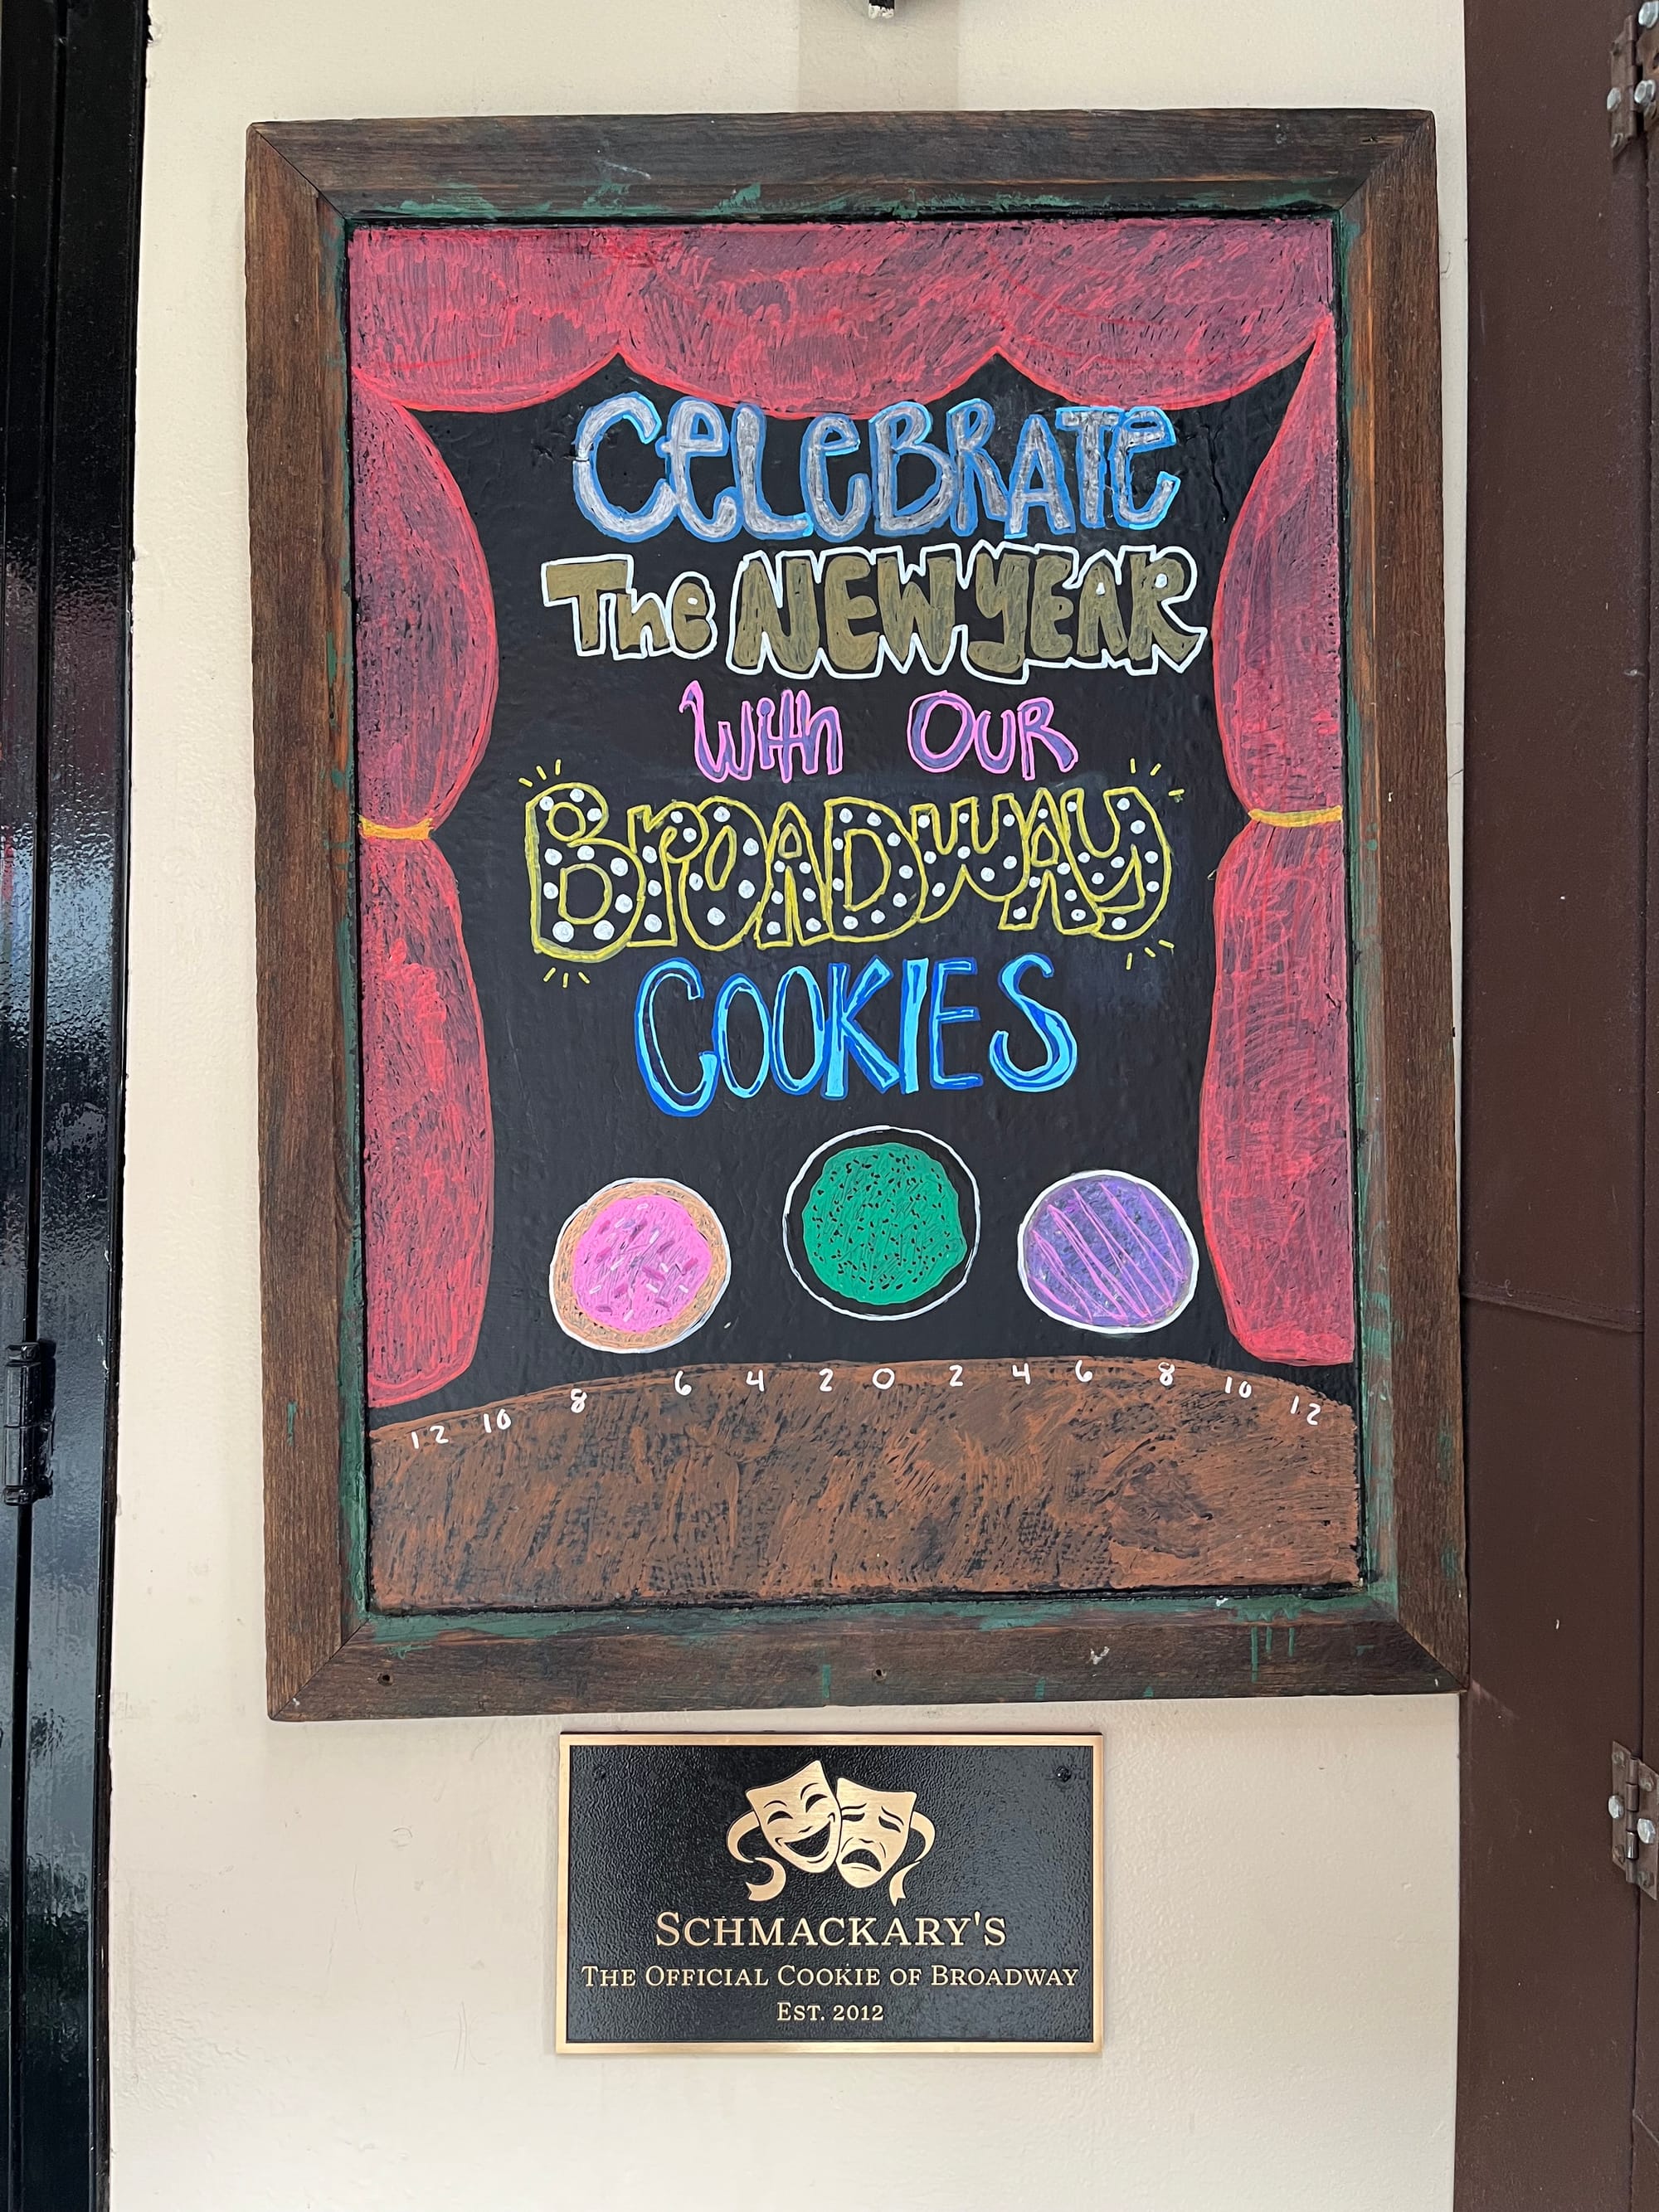 CeLeBRATe
The NEW YEAR
With OUR
BROADWAY
COOKIES
12 10 8 6 4 2 0 2 4 6 8 10 12
SCHMACKARY'S
THE OFFICIAL COOKIE OF BROADWAY
EST. 2012